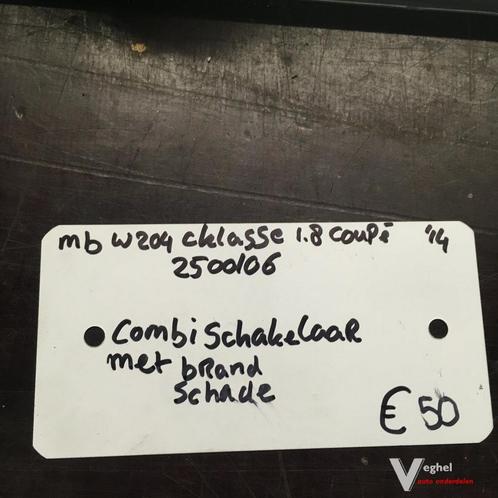 mb w204 cklasse 1.8 coupé '14
2500106
Combi Schakelaar
met brand
schade
€ 50
Veghel
auto onderdelen